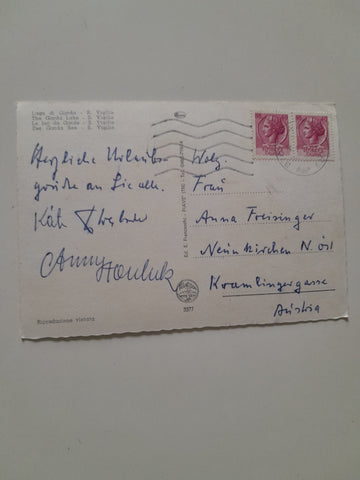 Lago di Garda - S. Vigilio
The Garda Lake - S. Vigilio
Le lac de Garda - S. Vigilio
Der Garda See - S. Vigilio
Herzliche Urlaubs-
grüße an Sie alle.
Käth
Anny
Wolg.
Frau
Anna Freisinger
Neunkirchen N. Öst
Kramlingergasse
Austria
3377
Riproduzione vietata